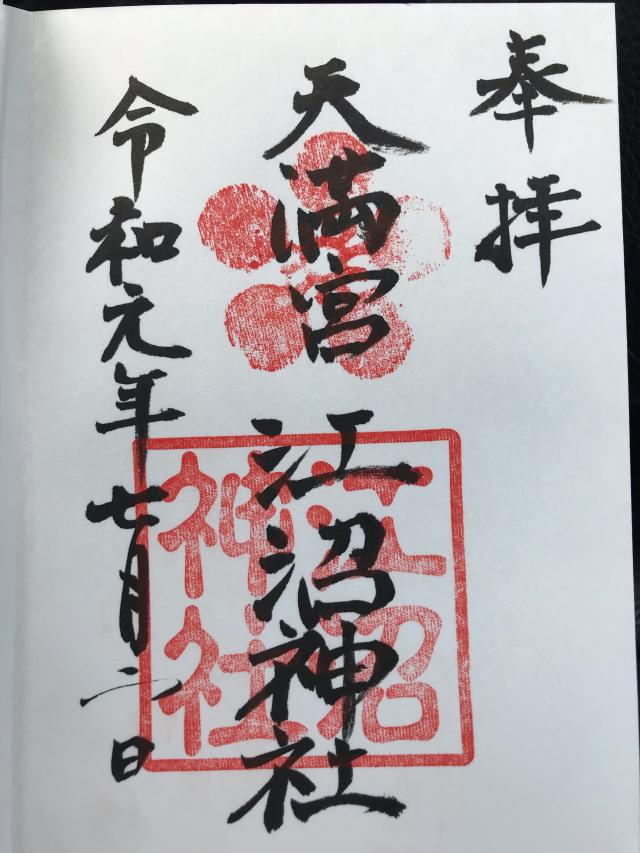 奉拝
天満宮 江沼神社
江沼神社
令和元年七月二日